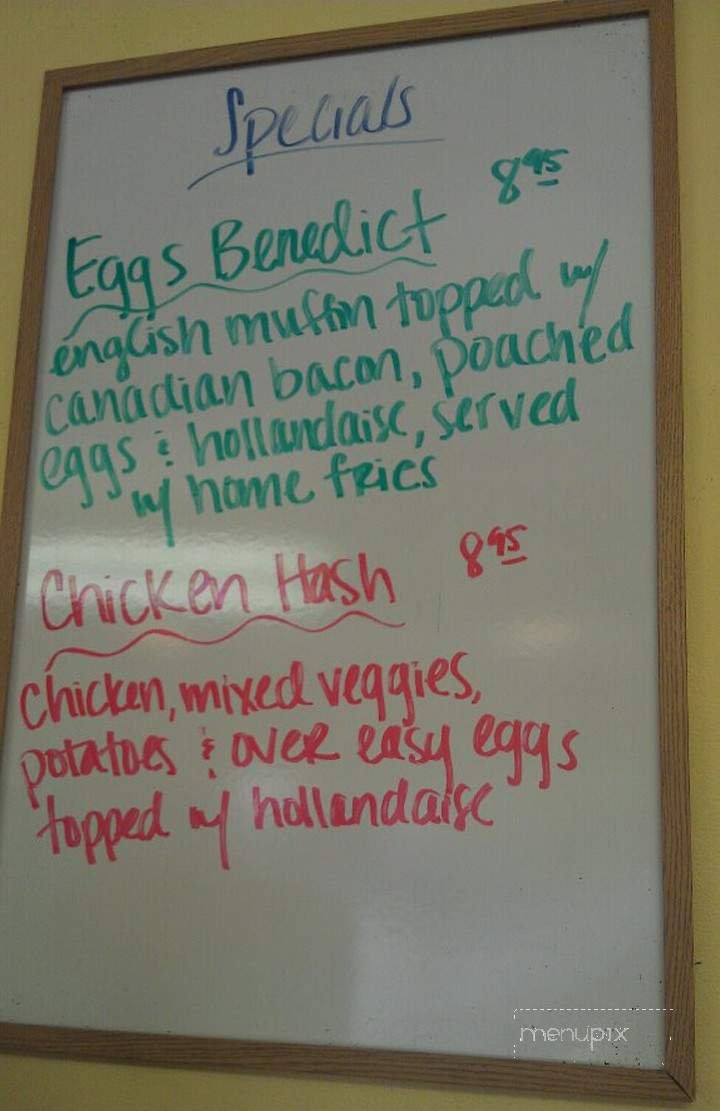 Specials
Eggs Benedict 8 95
english muffin topped w/
canadian bacon, poached
eggs & hollandaise, served
w/ home fries
Chicken Hash 8 95
chicken, mixed veggies,
potatoes & over easy eggs
topped w/ hollandaise
menupix